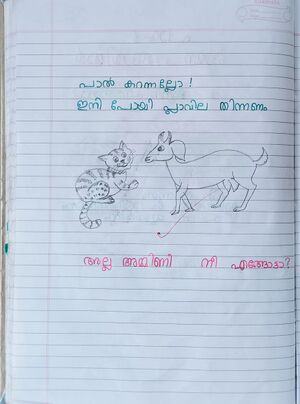 പാൽ കറന്നല്ലോ!
ഇനി പോയി പ്ലാവില തിന്നണം
അല്ല അമ്മിണി നീ എങ്ങോട്ടാ?